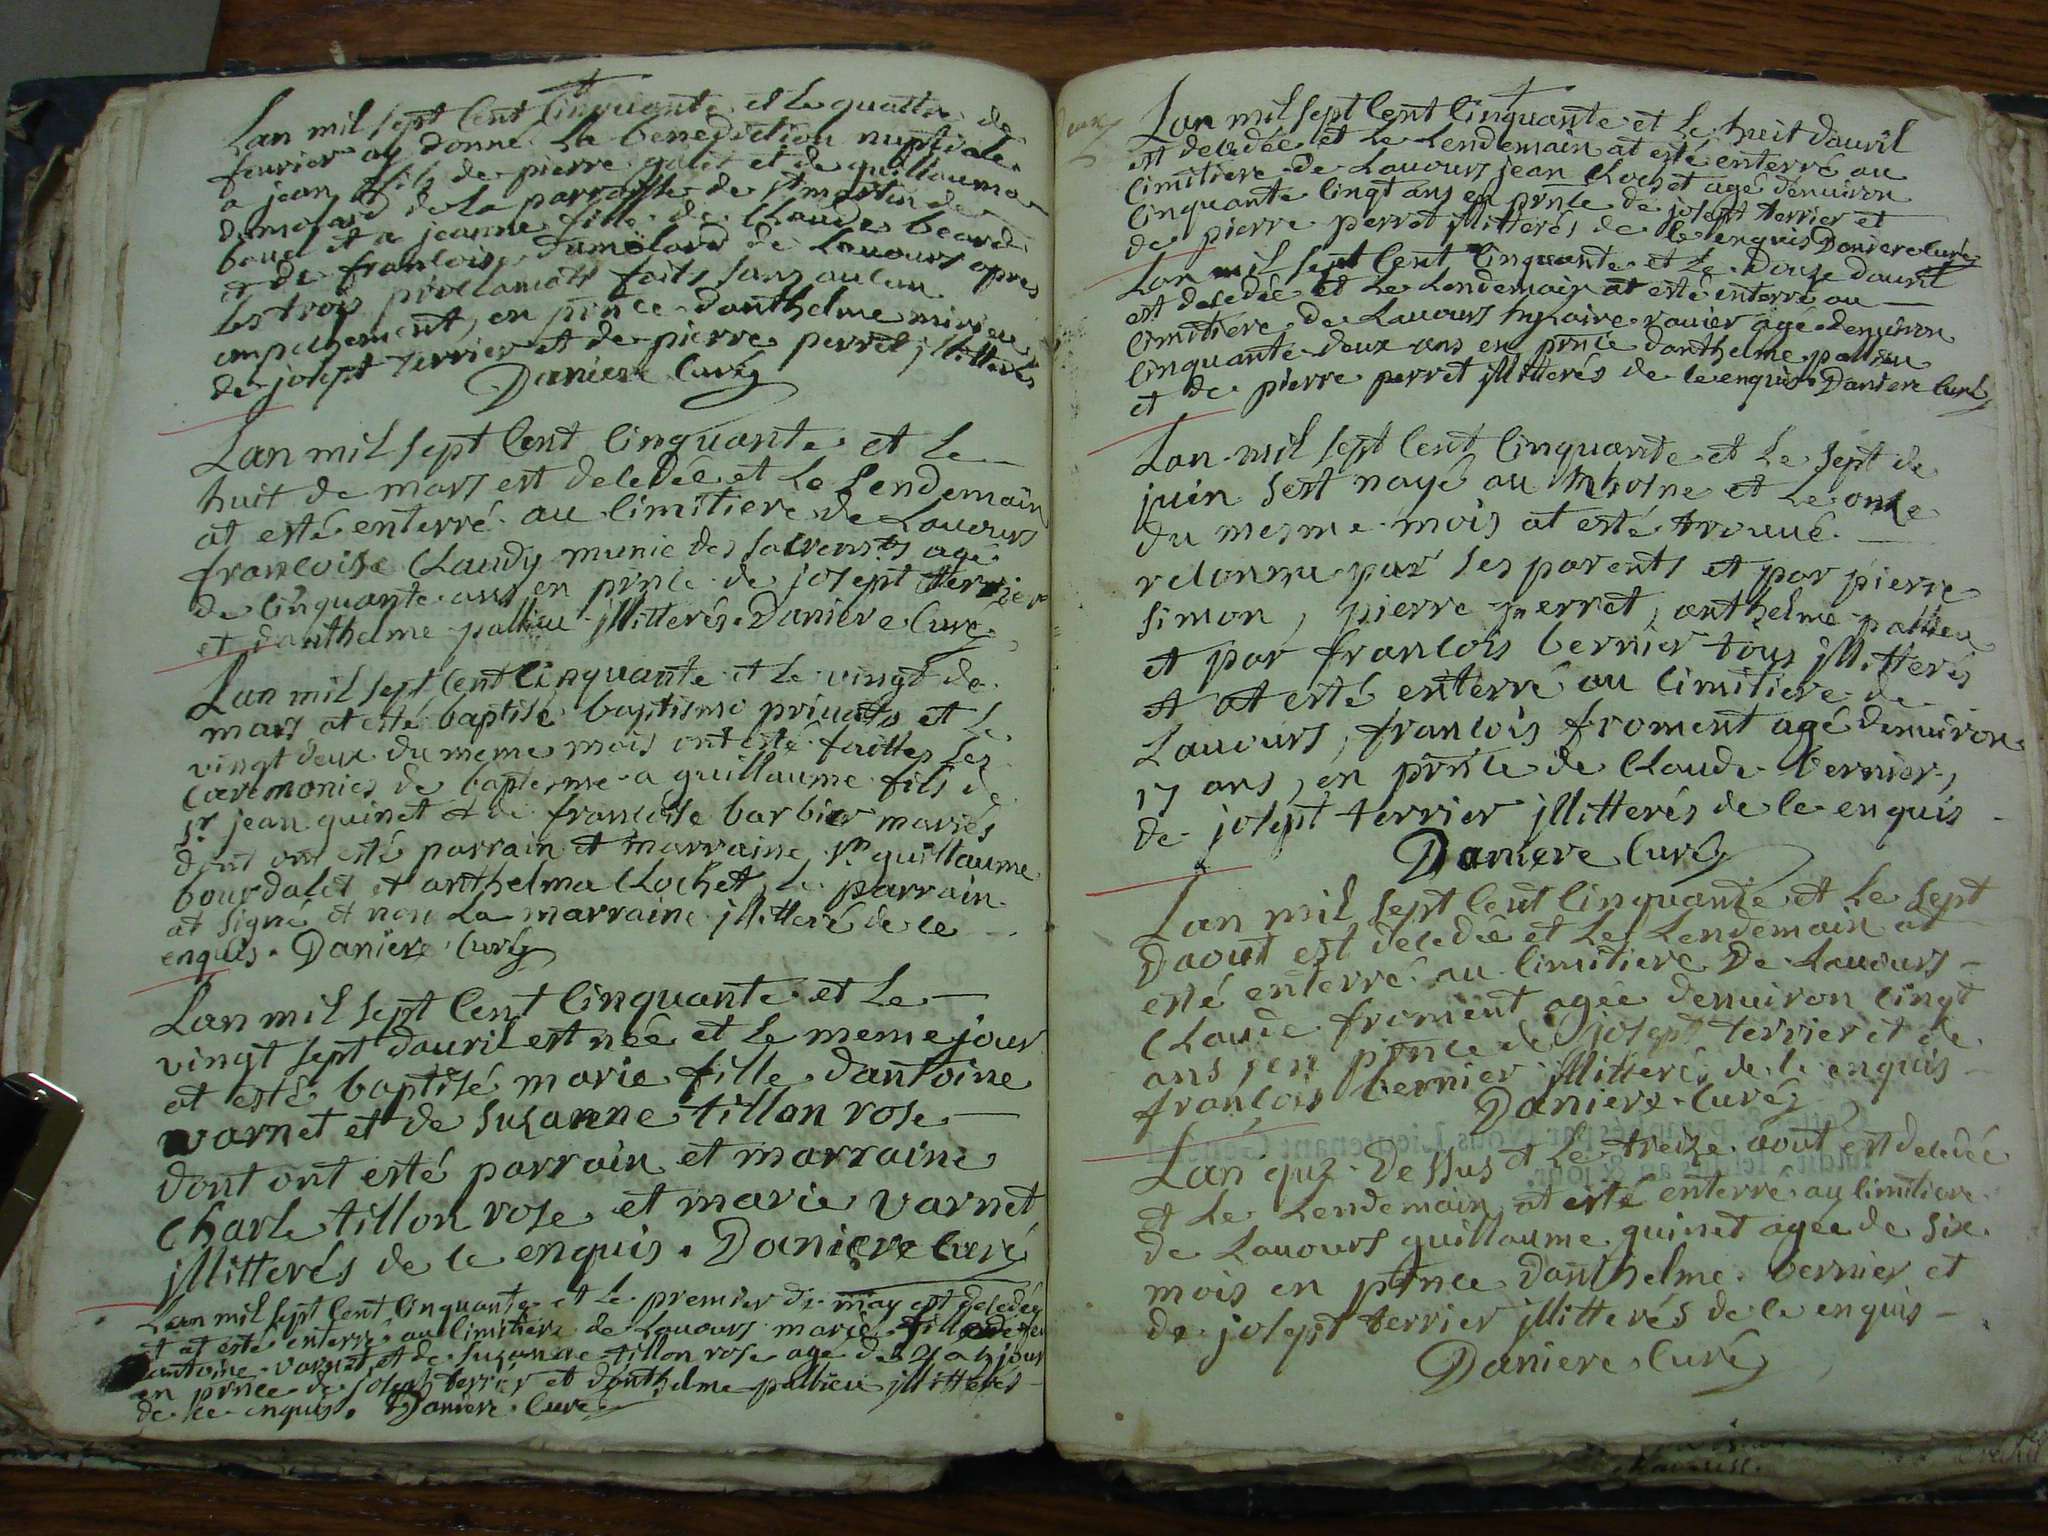 Lan mil sept Cent Cinquante et le quattre de
feurier ay donné La benediction nuptiale
a jean fils de pierre galet et de guillauma
dumolard de La parroisse de st martin de
bauel et a jeanne fille de Claude beard
et de francoise dumolard de Lauours apres
les trois proclamats faits sans aucun
empechement, en pnce danthelme
de josept terrier et de pierre perret jllitterés
Daniere Curé
Lan mil sept Cent Cinquante et Le
huit de mars est decedée et Le Lendemain
at esté enterré au Cimitiere de Lauours
francoise Claudy munie des sacrements agé
de Cinquante ans en pnce de josept terrier
et danthelme pallieu jllitterés Daniere Curé
Lan mil sept Cent Cinquante et Le vingt de
mars at esté baptisé baptismo priuato et Le
vingt deux du meme mois ont esté faittes Les
Cæremonies de baptesme a guillaume fils de
sr jean guinet et de francoise barbier mariés
dont ont esté parrain et marraine sr guillaume
bourdalet et anthelma Clochet, Le parrain
at signé et non La marraine jllitteré de ce
enquis. Daniere Curé
Lan mil sept Cent Cinquante et Le
vingt sept dauril est née et Le meme jour
at esté baptisé marie fille dantoine
varnet et de suzanne tillon rose
dont ont esté parrain et marraine
Charle tillon rose et marie varnet
jllitterés de ce enquis. Daniere Curé
Lan mil sept Cent Cinquante et Le premier de may est decedée
et at esté enterré au Cimitiere de Lauours marie fille de
antoine varnet et de suzanne tillon rose agé de jour
en pnce de joseph terrier et danthelme pallieu jllitterés
de ce enquis. Daniere Curé
Lan mil sept Cent Cinquante et Le huit dauril
est decedée et Le Lendemain at esté enterré au
Cimitiere de Lauours jean Clochet agé denuiron
Cinquante Cinqt ans en pnce de josept terrier et
de pierre perret jllitterés de ce enquis Daniere Curé
Lan mil sept Cent Cinquante et Le Douze dauril
est decedée et Le Lendemain at esté enterré au
Cimitiere de Lauours hylaire rauier agé denuiron
Cinquante deux ans en pnce danthelme pallieu
et de pierre perret jllitterés de ce enquis Daniere Curé
Lan mil sept Cent Cinquante et Le sept de
juin sest nayé au Rhosne et Le onze
du mesme mois at esté trouué
reconnu par ses parents et par pierre
simon, pierre perret, anthelme pallieu
et par francois bernier tous jllitterés
et at esté enterré au Cimitiere de
Lauours, francois froment agé denuiron
17 ans, en pnce de Claude bernier,
de josept terrier jllitterés de ce enquis
Daniere Curé
Lan mil sept Cent Cinquante et Le sept
Daout est decedée et Le Lendemain at
esté enterré au Cimitiere De Lauours
Claude froment agée denuiron Cinqt
ans, en pnce de josept terrier et de
françois bernier jllitterés de ce enquis
Daniere Curé
Lan que Dessus et Le treize aout est decedée
et Le Lendemain at esté enterré au Cimitiere
de Lauours guillaume guinet agée de six
mois en pnce danthelme bernier et
de josept terrier jllitterés de ce enquis
Daniere Curé